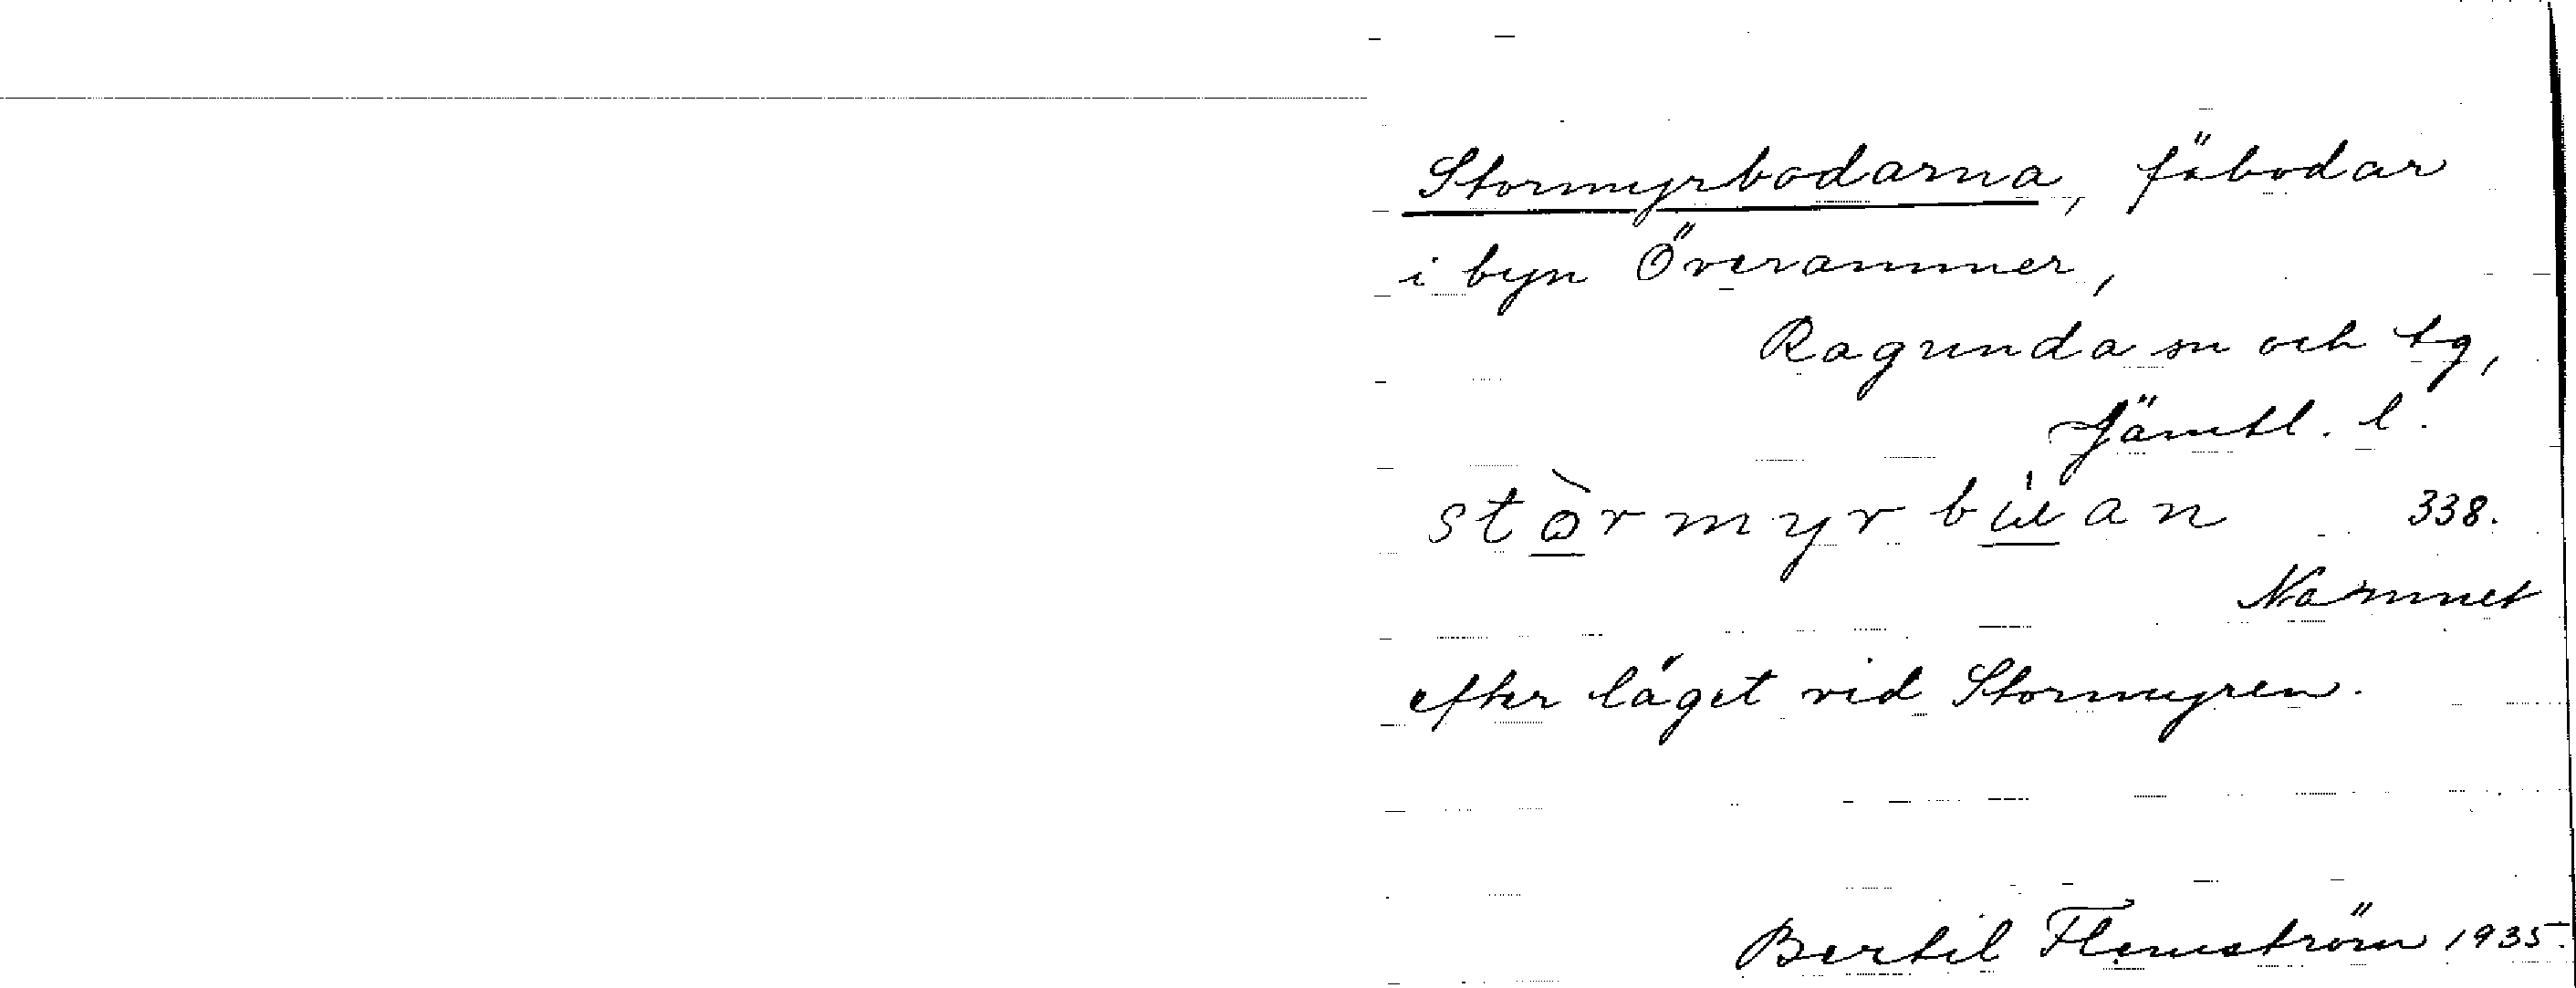 Stormyrbodarna, fäbodar
i byn Överammer,
Ragunda sn och tg,
Jämtl. l.
338.
Namnet
efter läget vid Stormyren.
Bertil Flemström 1935.